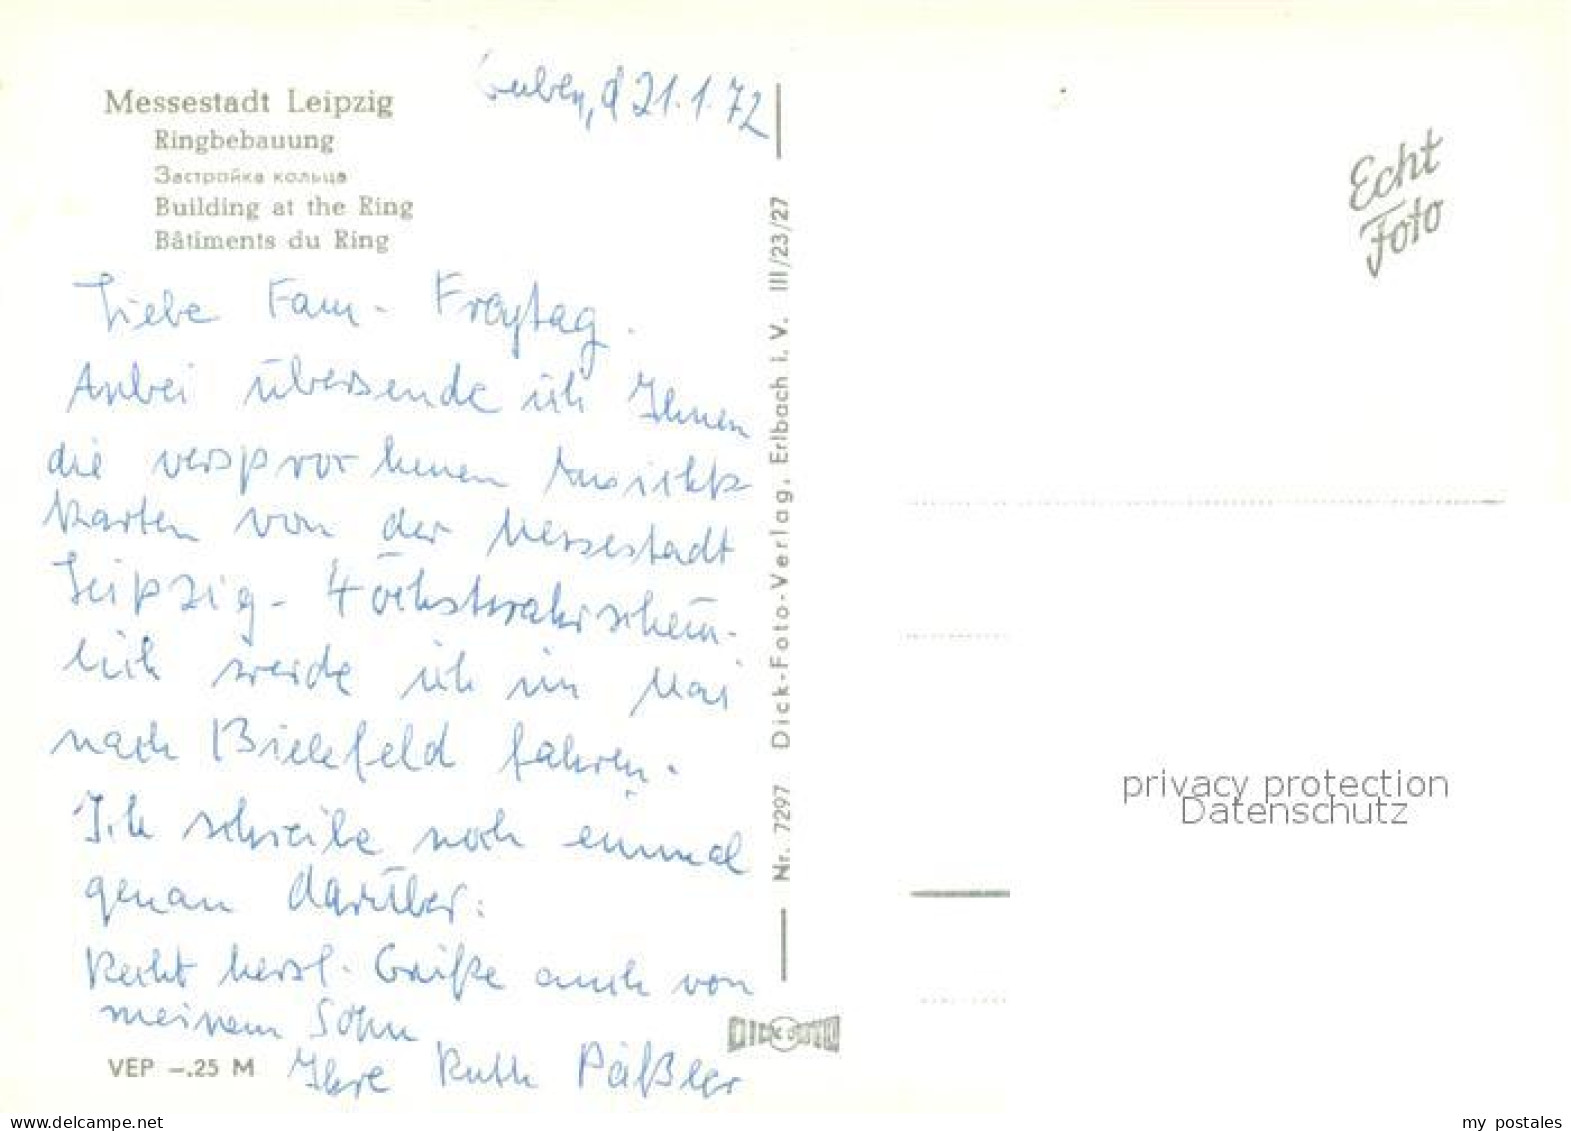 Guben, d 21.1.72
Messestadt Leipzig
Ringbebauung
Застройка кольца
Building at the Ring
Bâtiments du Ring
Liebe Fam. Freytag.
Anbei übersende ich Ihnen
die versprochenen Ansichts
karten von der Messestadt
Leipzig. Höchstwahrschein-
lich werde ich im Mai
nach Bielefeld fahren.
Ich schreibe noch einmal
genau darüber.
Recht herzl. Grüße auch von
meinem Sohn
Ihre Ruth Päßler
VEP –.25 M
Nr. 7297 Dick-Foto-Verlag, Erlbach i. V. III/23/27
DICK FOTO
Echt
Foto
privacy protection
Datenschutz
delcampe.net
my postales